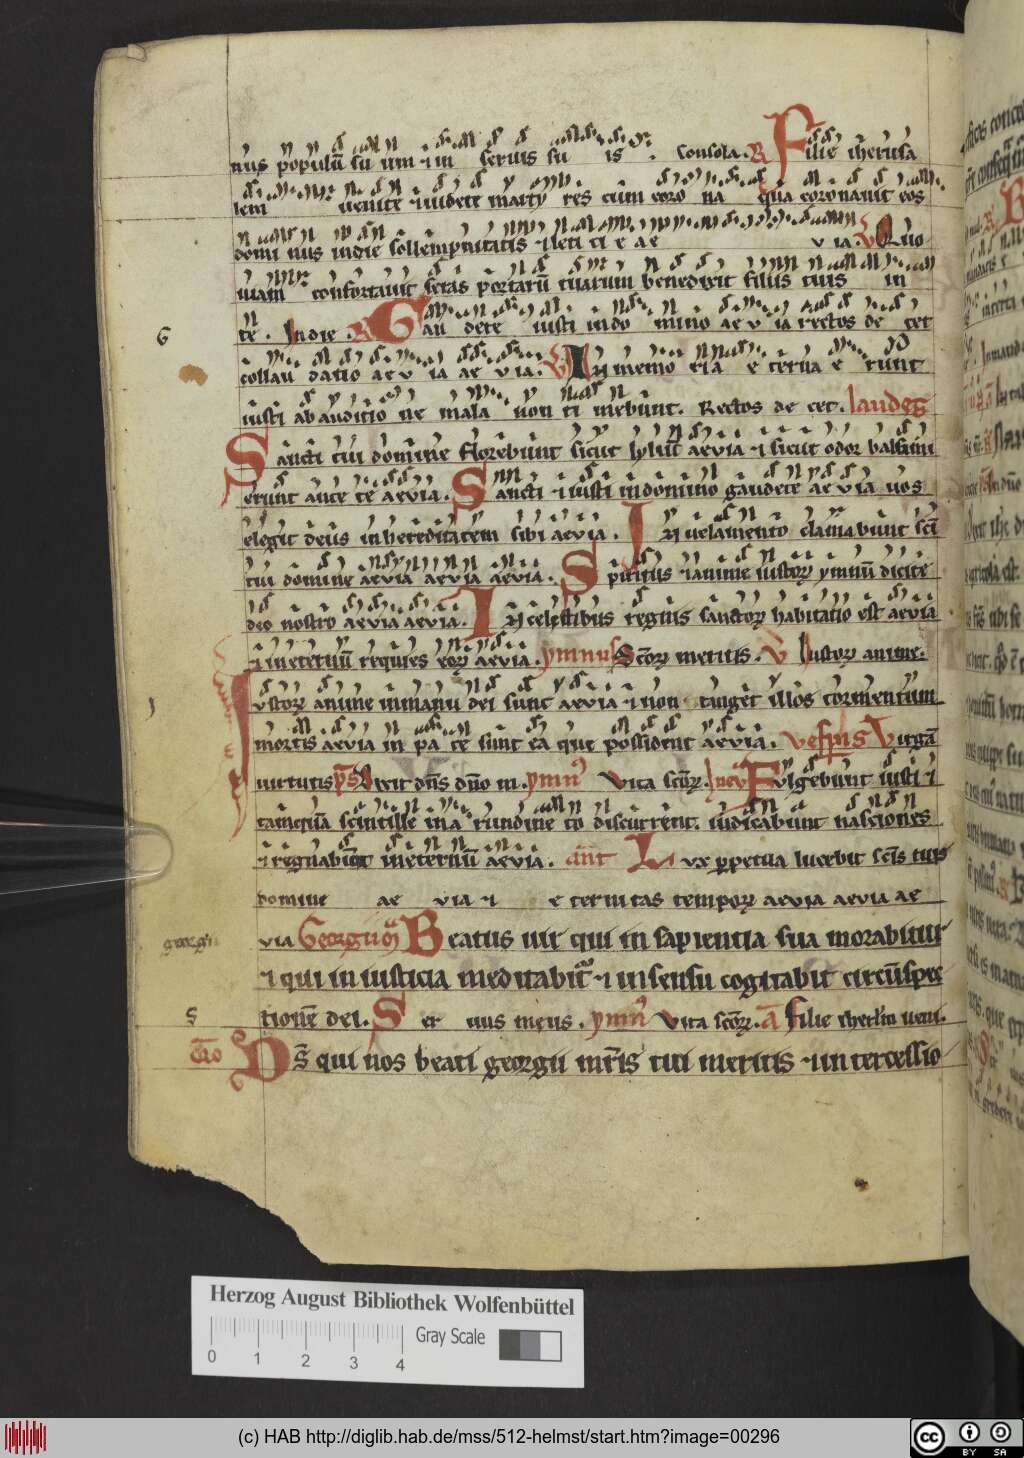 nus populū su um ⁊ in seruis su is . Consola. R Filie iherusa
lem uenite ⁊ uidete marty res cum coro na qua coronauit eos
domi nus in die sollempnitatis ⁊ leti ci e ae v ia. V Quo
niam confortauit seras portarū tuarum benedixit filiis tuis in
te . In die . R Gau dete iusti in do mino ae v ia rectos de cet
G
collau datio ae v ia ae v ia. V In memo ria e terna e runt
iusti ab auditio ne mala non ti mebunt. Rectos de cet. laudes
Sancti tui domine florebunt sicut lyliū aevia ⁊ sicut odor balsami
erunt ante te aevia. Sancti ⁊ iusti in domino gaudete ae via uos
elegit deus in hereditatem sibi aevia . In uelamento clamabunt scī
tui domine aevia aevia aevia. Spiritus ⁊ anime iustoꝝ ymnū dicite
deo nostro aevia aevia. In celestibus regnis sanctoꝝ habitatio est aevia
⁊ in eternū requies eoꝝ aevia. ymnus Scōꝝ meritis. V Iustoꝝ anime.
Iustoꝝ anime in manu dei sunt aevia ⁊ non tanget illos tormentum
mortis aevia in pa ce sunt ea que possident aevia. vespris Virga
uirtutis ps Dixit dn̄s dn̄o m. ymn⁹ Vita scōꝝ. In eu Fulgebunt iusti ⁊
tamquā scintille in a rundine to discurrent. iudicabunt nasciones
⁊ regnabunt in eternū aevia. ant Lux ꝑpetua lucebit scīs tuis
domine ae via ⁊ e ternitas tempoꝝ aevia aevia ae
georgii
via Georgii m̄ Beatus uir qui in sapientia sua morabitur
⁊ qui in iusticia meditabit ⁊ in sensu cogitabit circūspec
S
tionē dei. Ser uus meus . ymn⁹ Vita scōꝝ. ā Filie iherlm̄ veni.
Cīo
Ds̄ qui nos beati georgii mr̄is tui meritis ⁊ intercessio
Herzog August Bibliothek Wolfenbüttel
Gray Scale
0 1 2 3 4
(c) HAB http://diglib.hab.de/mss/512-helmst/start.htm?image=00296
cc BY SA